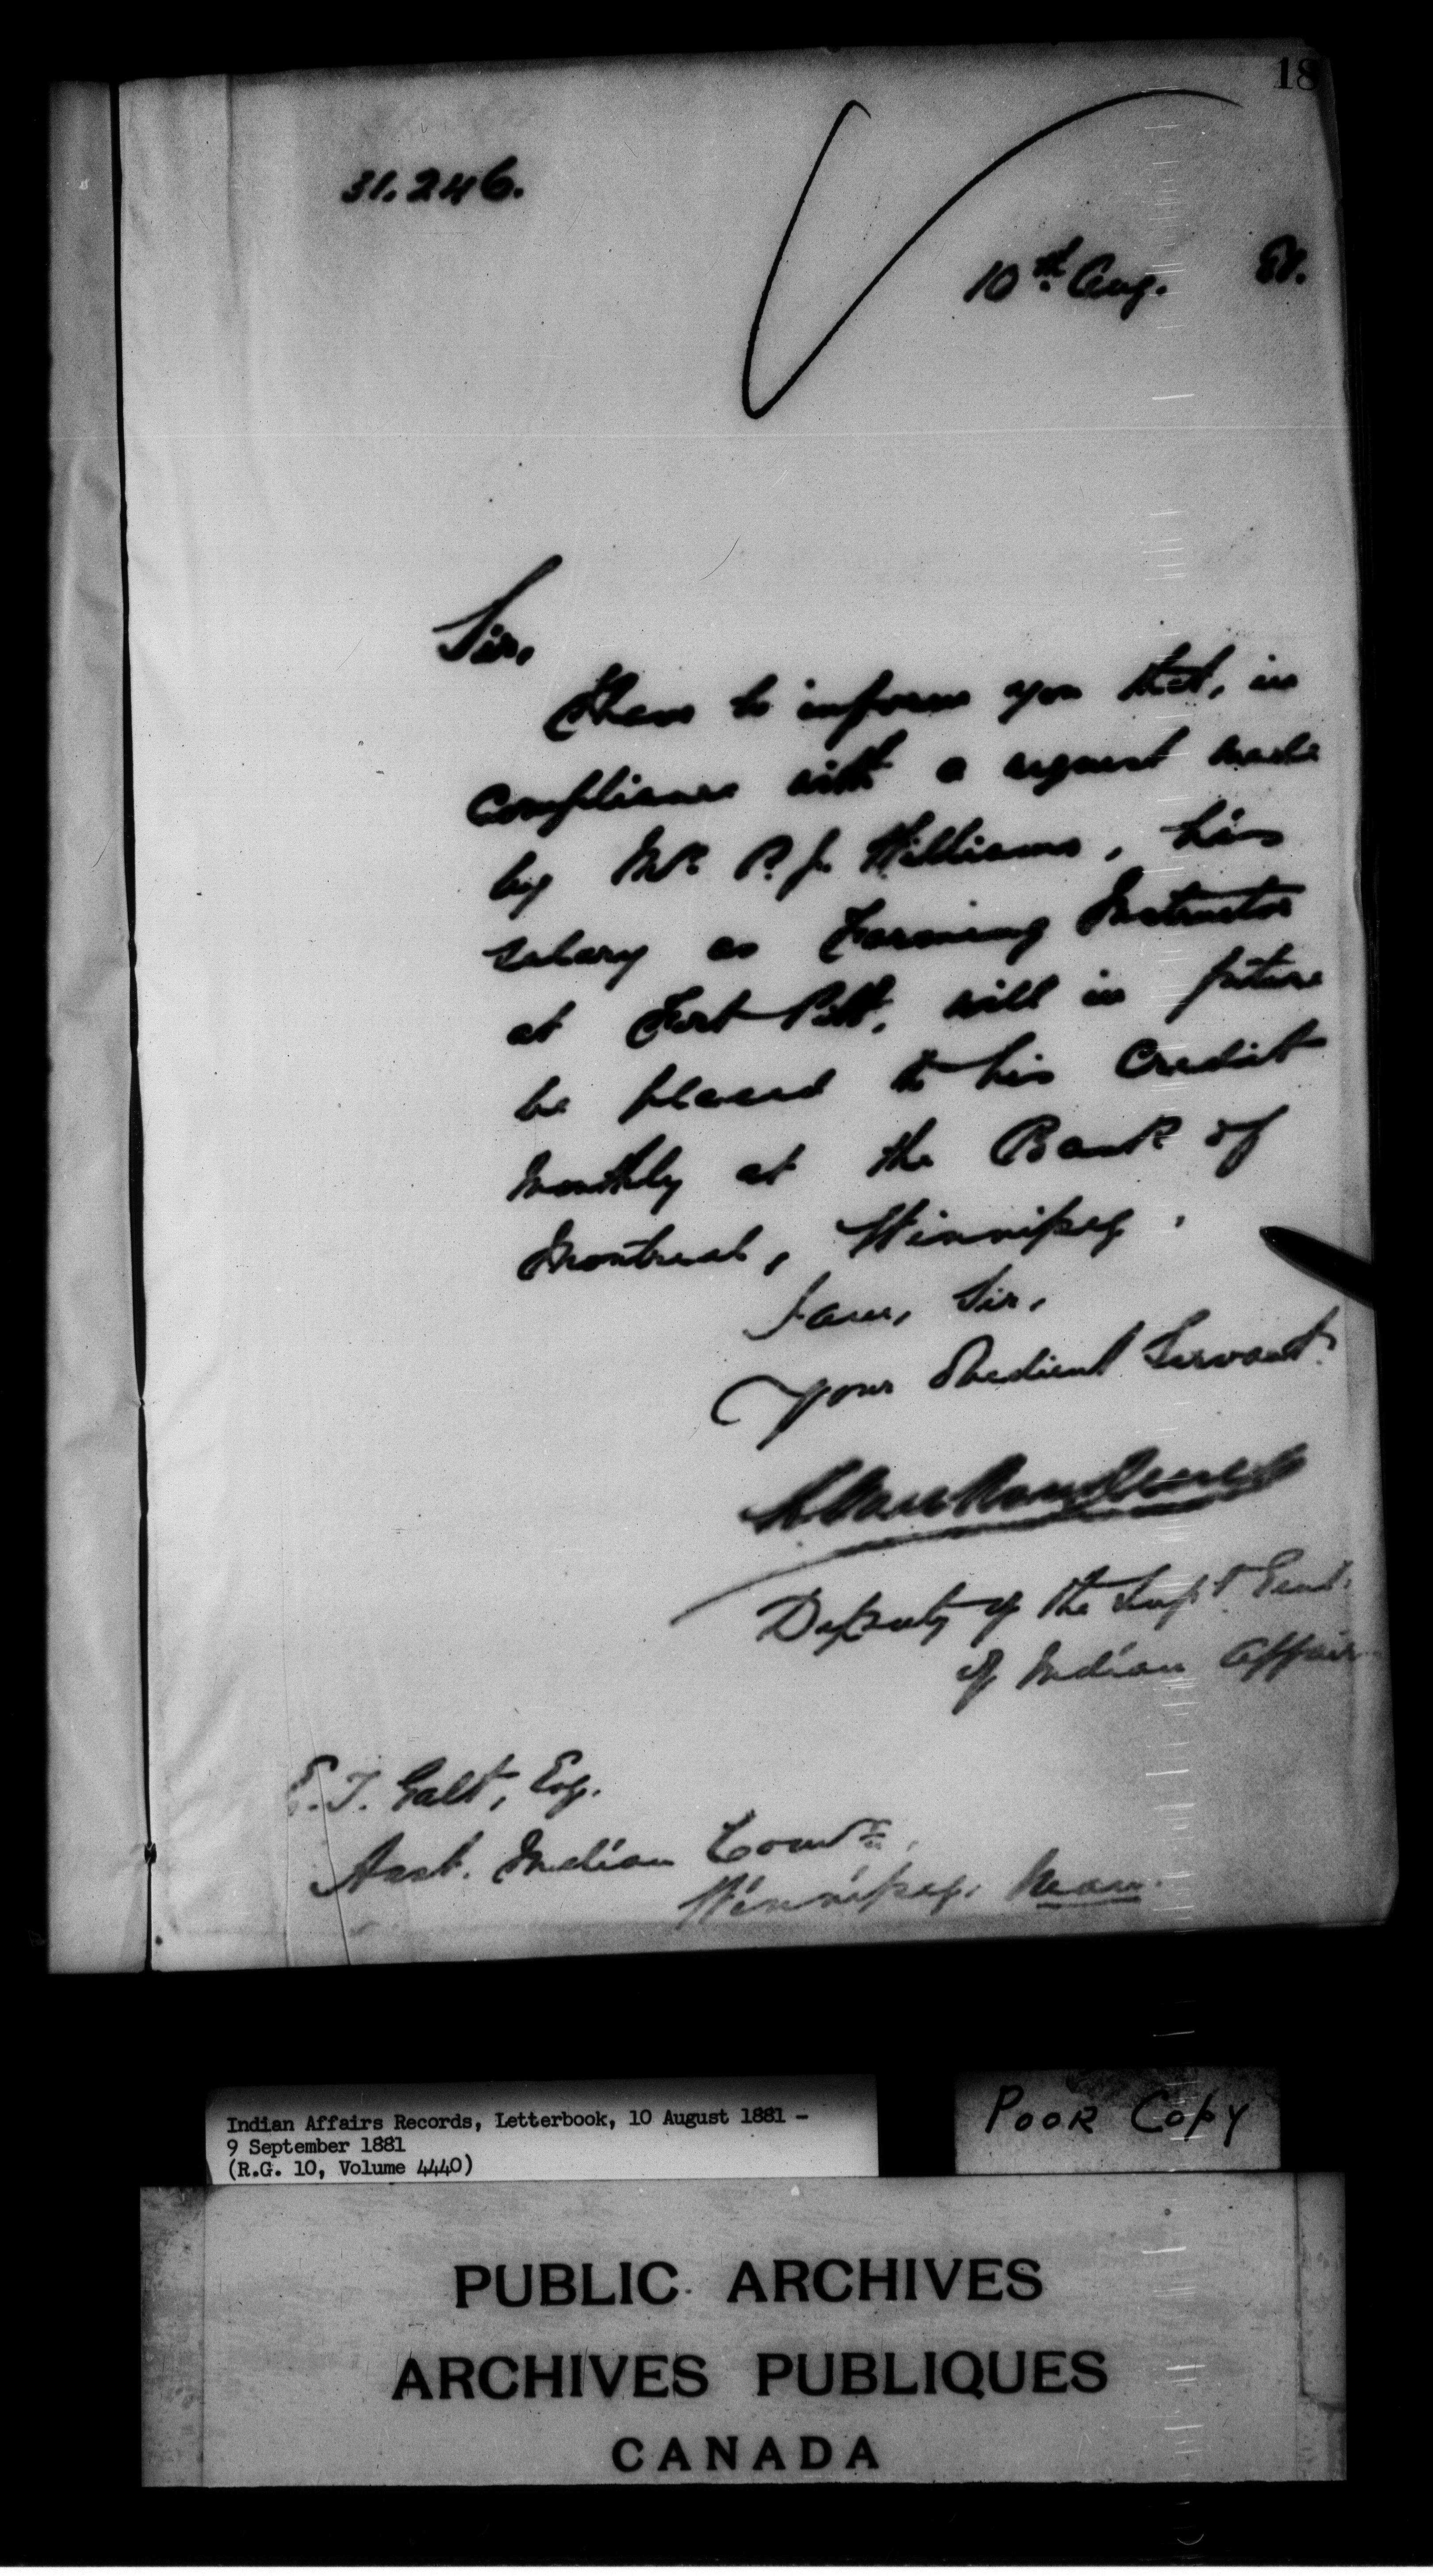 18
31.246.
10th Aug. 81.
Sir,
I have to inform you that, in
compliance with a request made
by Mr. P. J. Williams, his
salary as Farming Instructor
at Fort Pitt, will in future
be placed to his Credit
monthly at the Bank of
Montreal, Winnipeg.
I am, Sir,
Your Obedient Servant.
L. Vankoughnet
Deputy of the Supt Genl.
of Indian Affairs
E. T. Galt, Esq.
Asst. Indian Comr.,
Winnipeg, Man.
Indian Affairs Records, Letterbook, 10 August 1881 -
9 September 1881
(R.G. 10, Volume 4440)
POOR COPY
PUBLIC ARCHIVES
ARCHIVES PUBLIQUES
CANADA